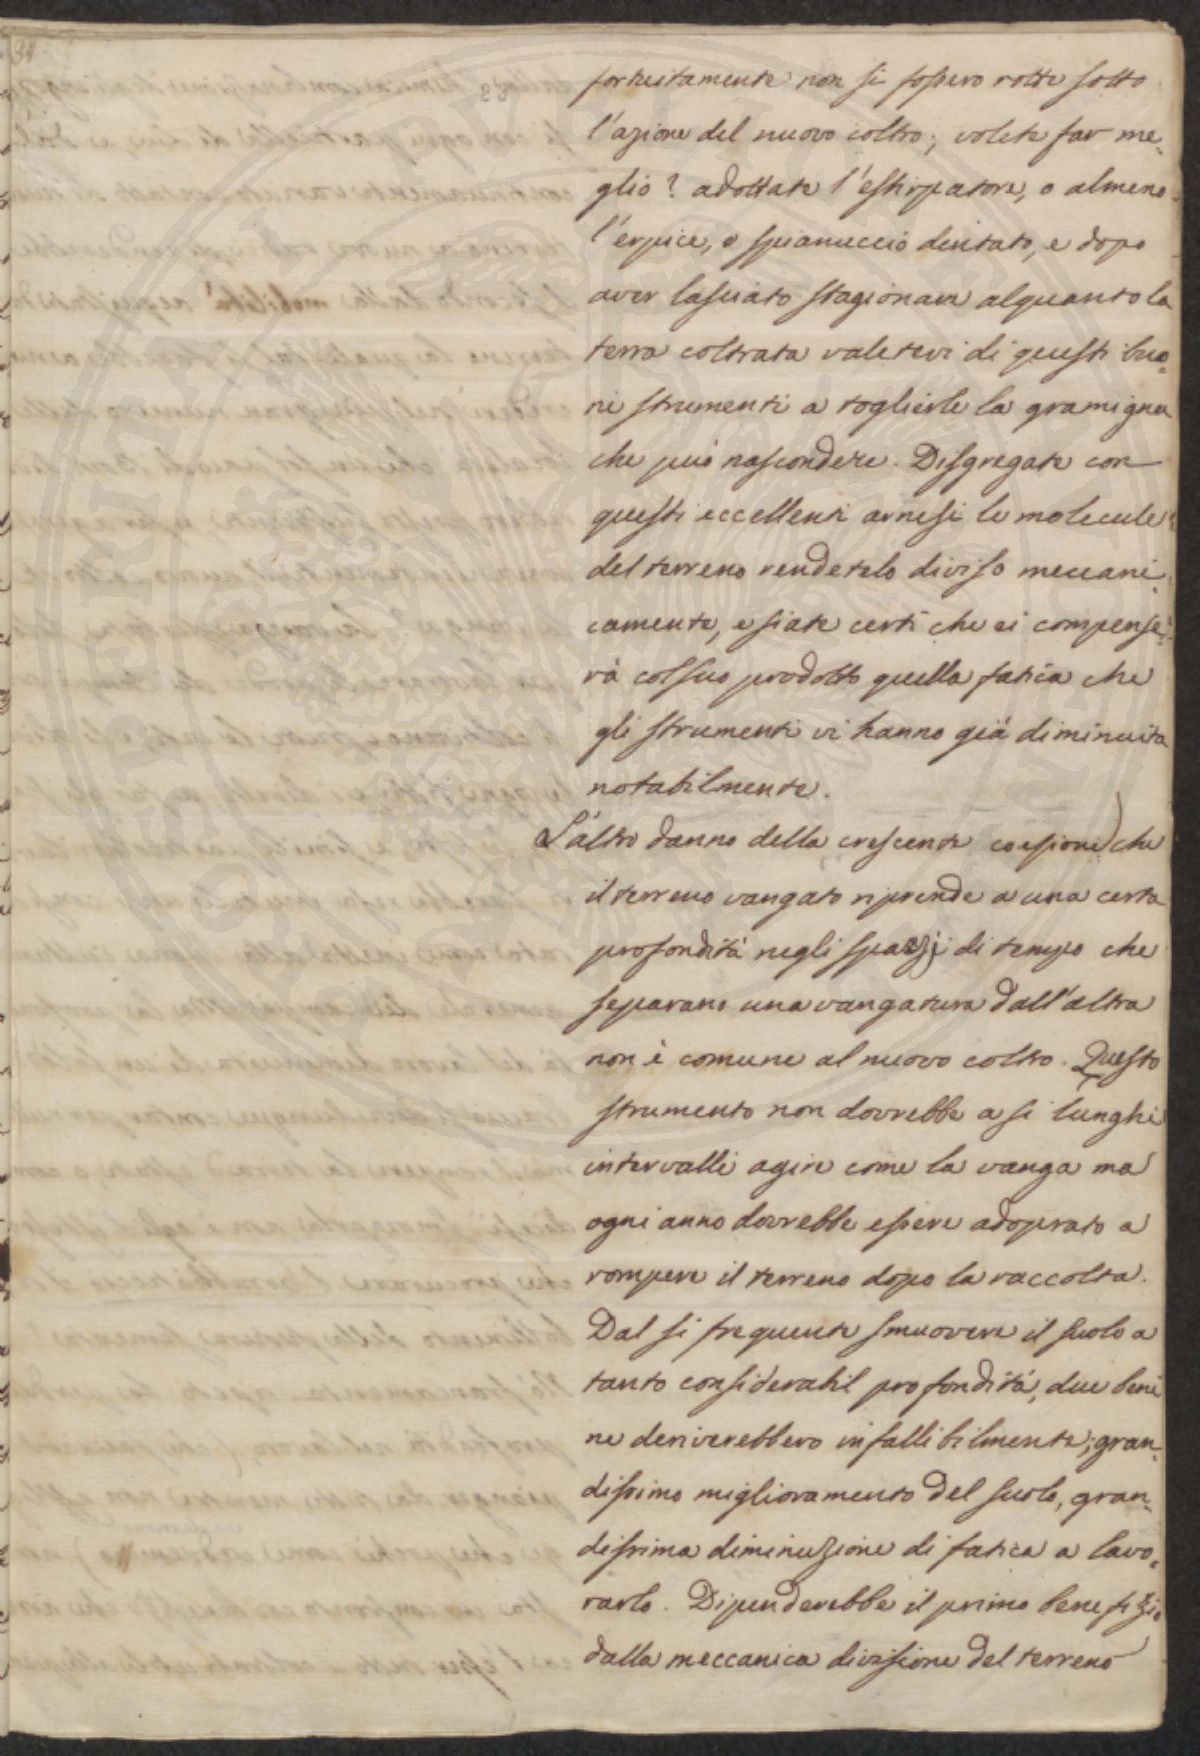 fortuitamente non si fossero rotte sotto
l'azione del nuovo coltro; volete far me=
glio? adottate l'estirpatore, o almeno
l'erpice, o spianuccio dentato, e dopo
aver lasciato stagionare alquanto la
terra coltrata valetevi di questi buo=
ni strumenti a toglierle la gramigna
che può nascondere. Disgregate con
questi eccellenti arnesi le molecule
del terreno rendetelo diviso meccani=
camente, e siate certi che ei compense=
rà col suo prodotto quella fatica che
gli strumenti vi hanno già diminuita
notabilmente.
L'altro danno della crescente coesione) che
il terreno vangato riprende a una certa
profondità negli spazzj di tempo che
separano una vangatura dall'altra
non è comune al nuovo coltro. Questo
strumento non dovrebbe a si lunghi
intervalli agire come la vanga ma
ogni anno dovrebbe essere adoprato a
rompere il terreno dopo la raccolta.
Dal si frequente smuovere il suolo a
tanto considerabil profondità, due beni
ne deriverebbero infallibilmente; gran=
dissimo miglioramento del suolo, gran=
dissima diminuzione di fatica a lavo=
rarlo. Dipenderebbe il primo benefizio
dalla meccanica divisione del terreno